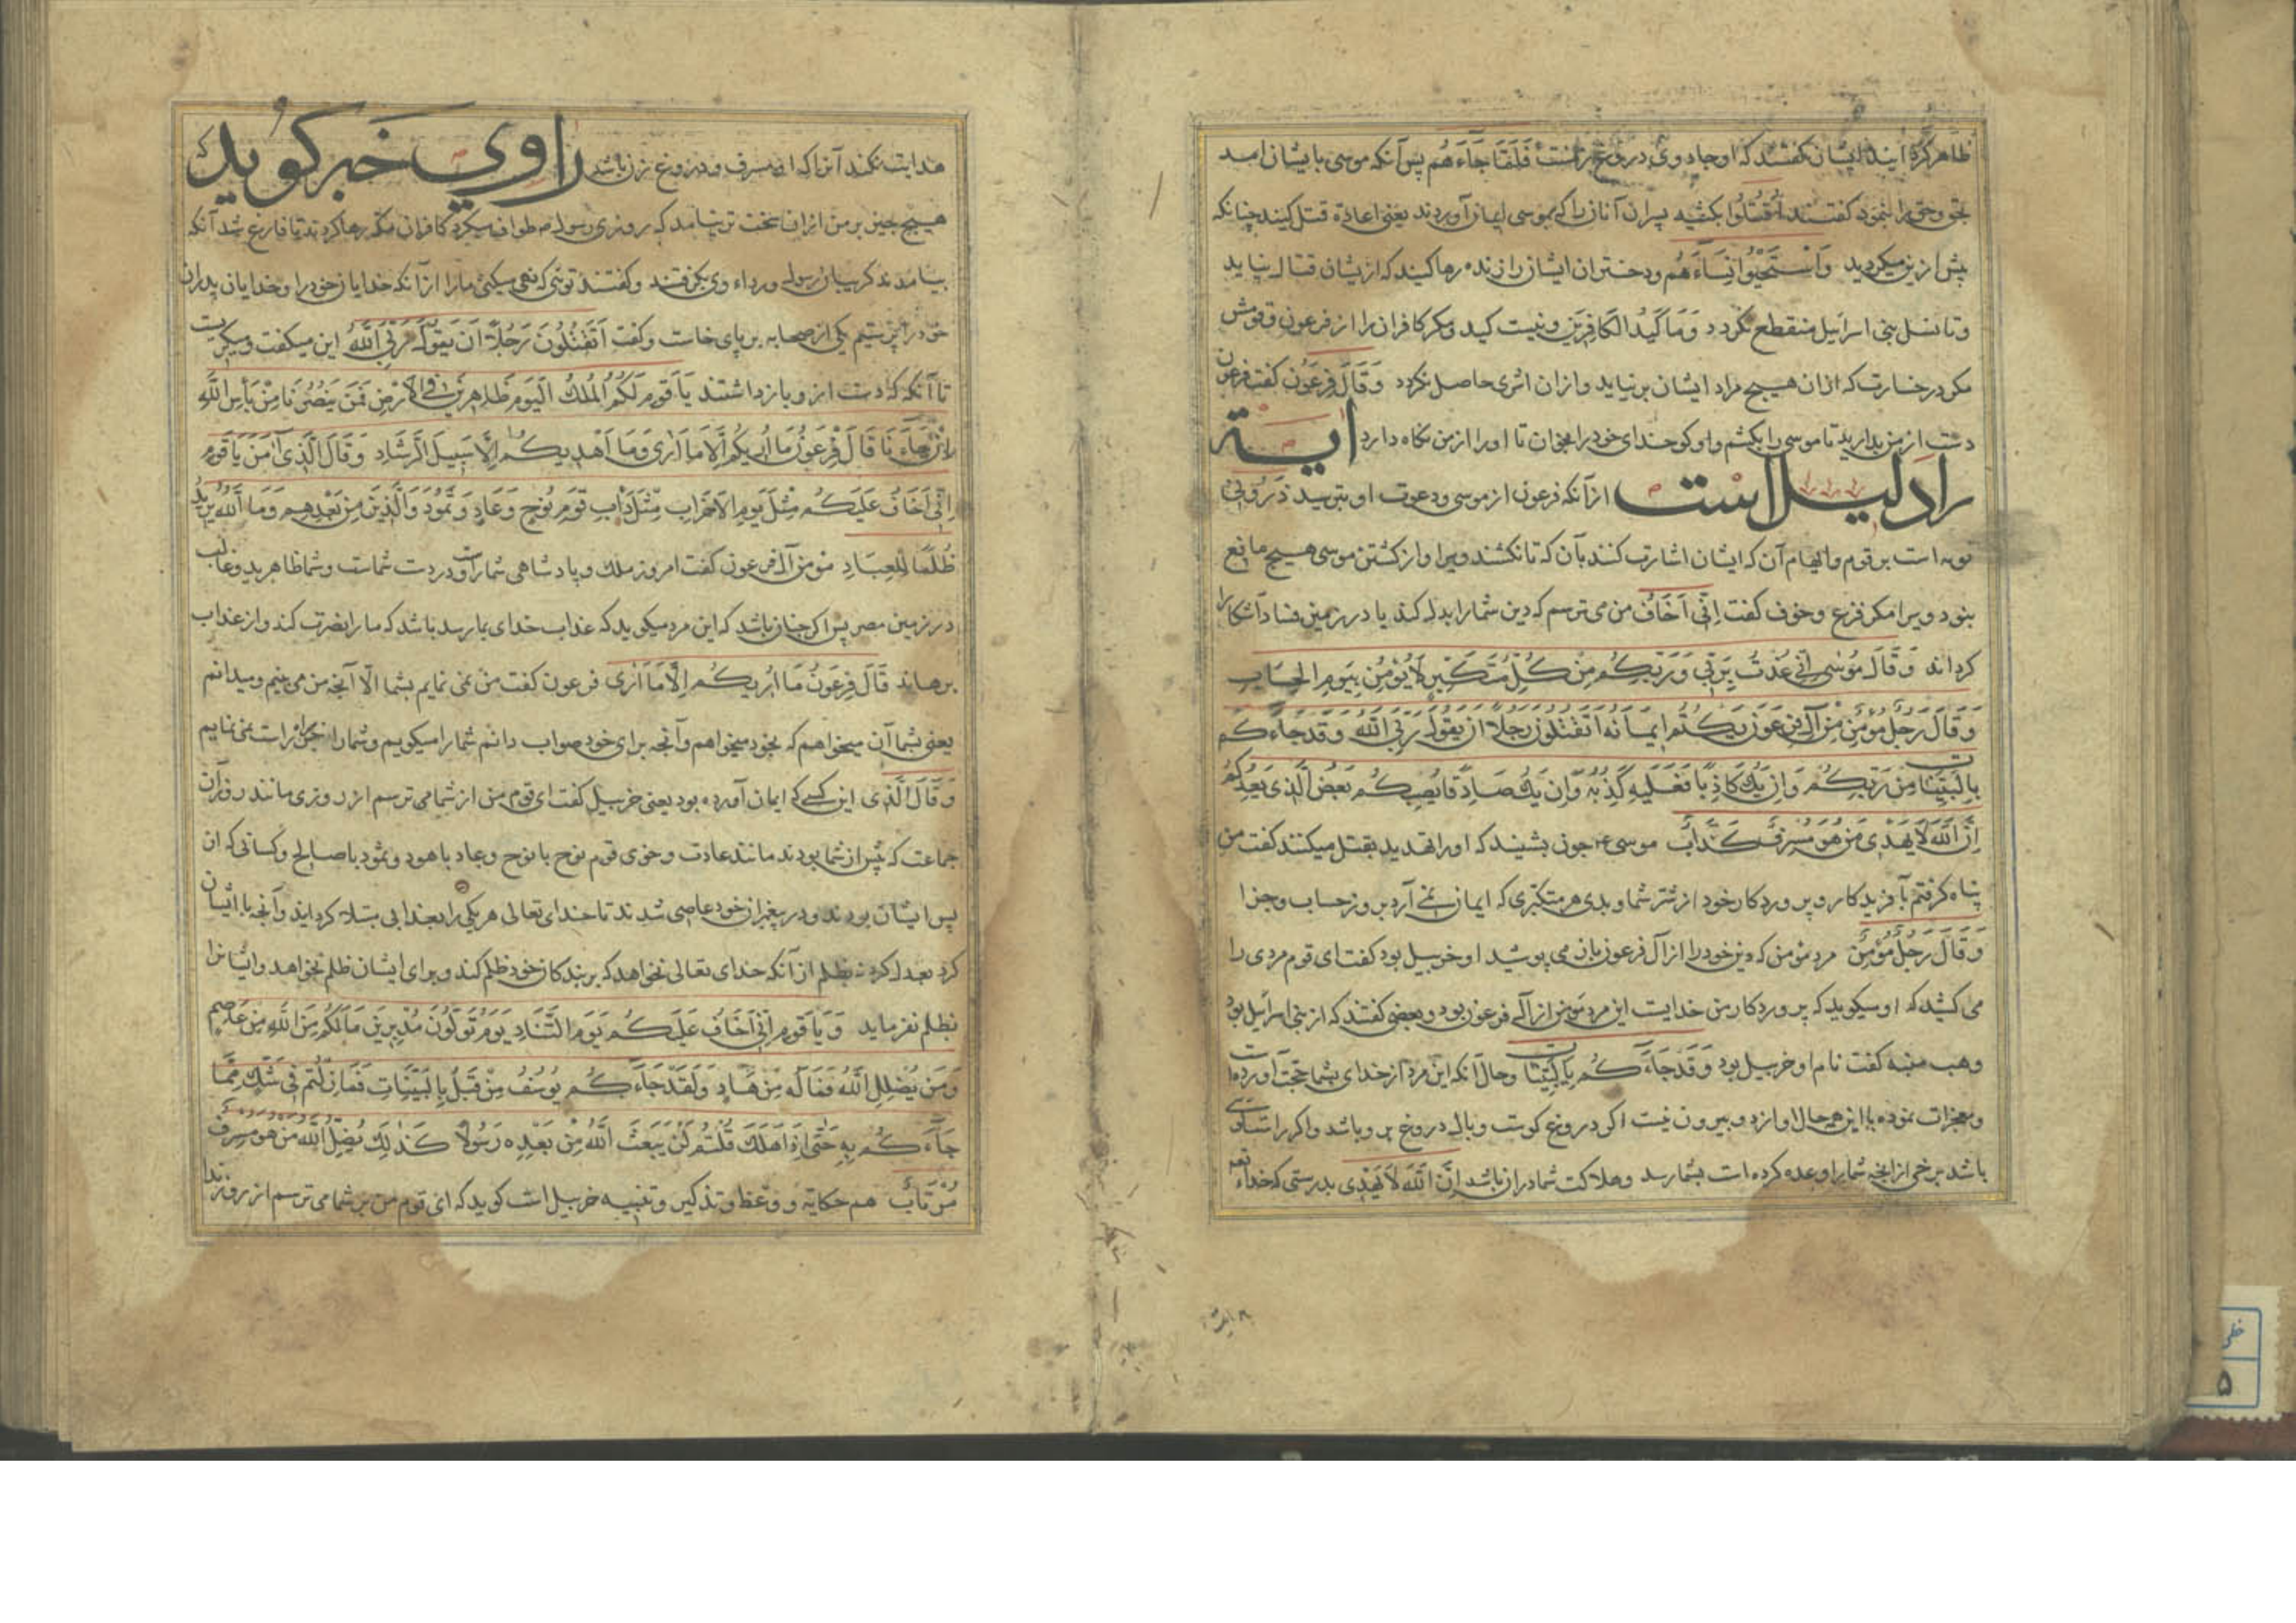 ظاهر گردانیدند ایشان گفتند که او جادوی دروغ زنست فَلَمَّا جَاءَهُم پس آنکه موسی بایشان امد
بحق و حق را بنمود گفتند اُقْتُلُوا بکشید پسران آنان را که بموسی ایمان آوردند یعنی اعادۀ قتل کنید چنانکه
پیش ازین میکردید وَاسْتَحْیُوا نِسَاءَهُم و دختران ایشان را زنده رها کنید که از یشان قتال نیاید
و تا نسل بنی اسرائیل منقطع نگردد وَمَا کَیْدُ الکَافِرِینَ و نیست کید و مکر کافران را از فرعون و قومش
مکر در خسارت که ازان هیچ مراد ایشان برنیاید و ازان اثری حاصل نگردد وَقَالَ فِرْعَوْن گفت فرعون
دست از من بدارید تا موسی را بکشم و او کو خدای خود را بخوان تا او را از من نگاه دارد ایة
را دلیل است از آنکه فرعون از موسی و دعوت او بترسید ذَرُونِی
توبه است بر قوم و ایهام آن که ایشان اشارت کنند بآن که تا نکشند ویرا و از کشتن موسی هیچ مانع
بنود ویرا مکر فزع و خوف گفت اِنِّی اَخَافُ من می ترسم که دین شما را بدل کند یا در زمین فساد آشکارا
کرداند وَقَالَ مُوسٰی اِنِّی عُذْتُ بِرَبِّی وَرَبِّکُم مِنْ کُلِّ مُتَکَبِّرٍ لَا یُؤْمِنُ بِیَوْمِ الحِسَابِ
وَقَالَ رَجُلٌ مُؤْمِنٌ مِنْ آلِ فِرْعَوْنَ یَکْتُمُ اِیمَانَهُ اَتَقْتُلُونَ رَجُلًا اَنْ یَقُولَ رَبِّیَ اللّٰهُ وَقَدْ جَاءَکُم
بِالبَیِّنَاتِ مِنْ رَبِّکُم وَاِنْ یَكُ کَاذِبًا فَعَلَیْهِ کَذِبُهُ وَاِنْ یَكُ صَادِقًا یُصِبْکُم بَعْضُ الَّذِی یَعِدُکُمْ
اِنَّ اللّٰهَ لَا یَهْدِی مَنْ هُوَ مُسْرِفٌ کَذَّابٌ موسی ع چون بشیند که او را تهدید بقتل میکنند گفت من
پناه گرفتم بآفریدکار و پروردکار خود از شر شما و بدی هر متکبری که ایمان نمی آرد بروز حساب و جزا
وَقَالَ رَجُلٌ مُؤْمِنٌ مرد مؤمن که دین خود را از آل فرعون بان می پوشید او خربیل بود گفت ای قوم مردی را
می کشید که او میکوید که پروردکار من خدایست این مرد مؤمن از آل فرعون بود و بعضی گفتند که از بنی اسرائیل بود
وهب منبه گفت نام او خربیل بود وَقَدْ جَاءَکُمْ بِالبَیِّنَاتِ و حال آنکه این مرد از خدای بشما حجت آورده است
و معجزات نموده با این همه حال او از دو بیرون نیست اگر دروغ کوست وبال دروغ بر وباشد و اکر راستکوی
باشد برخی از انچه شما را وعده کرده است بشما رسد و هلاکت شما دران باشد اِنَّ اللّٰهَ لَا یَهْدِی بدرستی که خدا تعه
هدایت نکند آنرا که او مسرف و دروغ زن باشد راوی خبر کوید که
هیچ چیز بر من ازان سخت تر نیامد که روزی رسول ص طواف میکرد کافران مکه رها کردند تا فارغ شد آنکه
بیامدند کریبان رسول و رداء وی بگرفتند و گفتند توئی که نهی میکنی ما را از آنکه خدایان خود را و خدایان پدران
خود را پرستیم یکی از صحابه بر پای خاست و گفت اَتَقْتُلُونَ رَجُلًا اَنْ یَقُولَ رَبِّیَ اللّٰهُ این میکفت و میکریست
تا آنکه که دست ازو باز داشتند یَا قَوْمِ لَکُمُ المُلْكُ الیَوْمَ ظَاهِرِینَ فِی الاَرْضِ فَمَنْ یَنْصُرُنَا مِنْ بَأْسِ اللّٰهِ
اِنْ جَاءَنَا قَالَ فِرْعَوْنُ مَا اُرِیکُمْ اِلَّا مَا اَرٰی وَمَا اَهْدِیکُم اِلَّا سَبِیلَ الرَّشَادِ وَقَالَ الَّذِی اٰمَنَ یَا قَوْمِ
اِنِّی اَخَافُ عَلَیْکُم مِثْلَ یَوْمِ الاَحْزَابِ مِثْلَ دَأْبِ قَوْمِ نُوحٍ وَعَادٍ وَثَمُودَ وَالَّذِینَ مِنْ بَعْدِهِم وَمَا اللّٰهُ یُرِیدُ
ظُلْمًا لِلْعِبَادِ مؤمن آل فرعون گفت امروز ملك و پادشاهی شماراست و در دست شماست و شما ظاهرید و غالب
در زمین مصر پس اکر چنان باشد که این مرد میکوید که عذاب خدای بما رسد باشد که ما را نصرت کند و از عذاب
برهاند قَالَ فِرْعَوْنُ مَا اُرِیکُم اِلَّا مَا اَرٰی فرعون گفت من نمی نمایم بشما الّا آنچه من می بینم و میدانم
یعنی بشما آن میخواهم که بخود میخواهم و آنچه برای خود صواب دانم شما را میکویم و شما را جز راه راست نمی نمایم
وَقَالَ الَّذِی این کسی که ایمان آورده بود یعنی خربیل گفت ای قوم من از شما می ترسم از روزی مانند روز آن
جماعت که پیش از شما بودند مانند عادت و خوی قوم نوح با نوح و عاد با هود و ثمود با صالح و کسانی که ان
پس ایشان بودند و در پیغمبران خود عاصی شدند تا خدای تعالی هر یکی را بعذابی مبتلا کردانید و آنچه با ایشان
کرد بعدل کرد نه بظلم از آنکه خدای تعالی نخواهد که بر بندکان خود ظلم کند و برای ایشان ظلم نخواهد و ایشانرا
بظلم نفرماید وَیَا قَوْمِ اِنِّی اَخَافُ عَلَیْکُم یَوْمَ التَّنَادِ یَوْمَ تُوَلُّونَ مُدْبِرِینَ مَا لَکُمْ مِنَ اللّٰهِ مِنْ عَاصِمٍ
وَمَنْ یُضْلِلِ اللّٰهُ فَمَا لَهُ مِنْ هَادٍ وَلَقَدْ جَاءَکُم یُوسُفُ مِنْ قَبْلُ بِالبَیِّنَاتِ فَمَا زِلْتُمْ فِی شَكٍّ مِمَّا
جَاءَکُم بِهِ حَتّٰی اِذَا هَلَكَ قُلْتُمْ لَنْ یَبْعَثَ اللّٰهُ مِنْ بَعْدِهِ رَسُولًا کَذٰلِكَ یُضِلُّ اللّٰهُ مَنْ هُوَ مُسْرِفٌ
مُرْتَابٌ هم حکایه و وعظ و تذکیر و تنبیه خربیل است کوید که ای قوم من بر شما می ترسم از روز ندا
خطی
۵